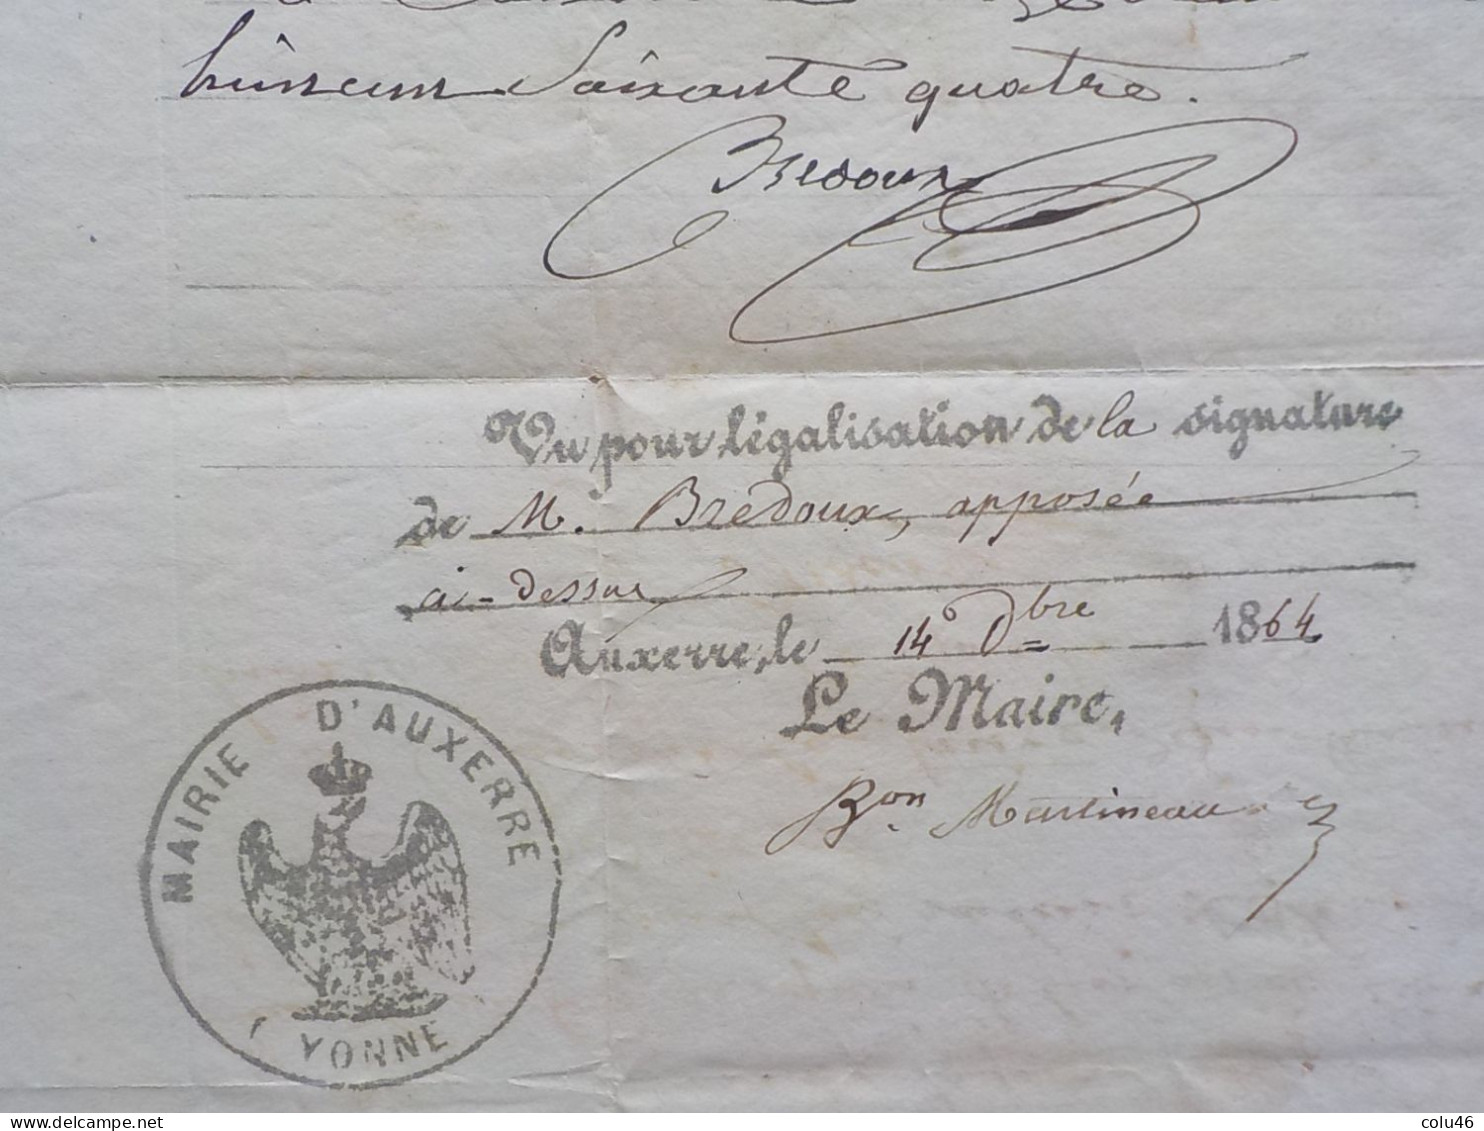 huit cent soixante quatre.
Bredoux
Vu pour légalisation de la signature
de M. Bredoux, apposée
ci-dessus
Auxerre, le 14 Xbre 1864
Le Maire,
Bon Martineau
MAIRIE D'AUXERRE
YONNE
delcampe.net
colu46